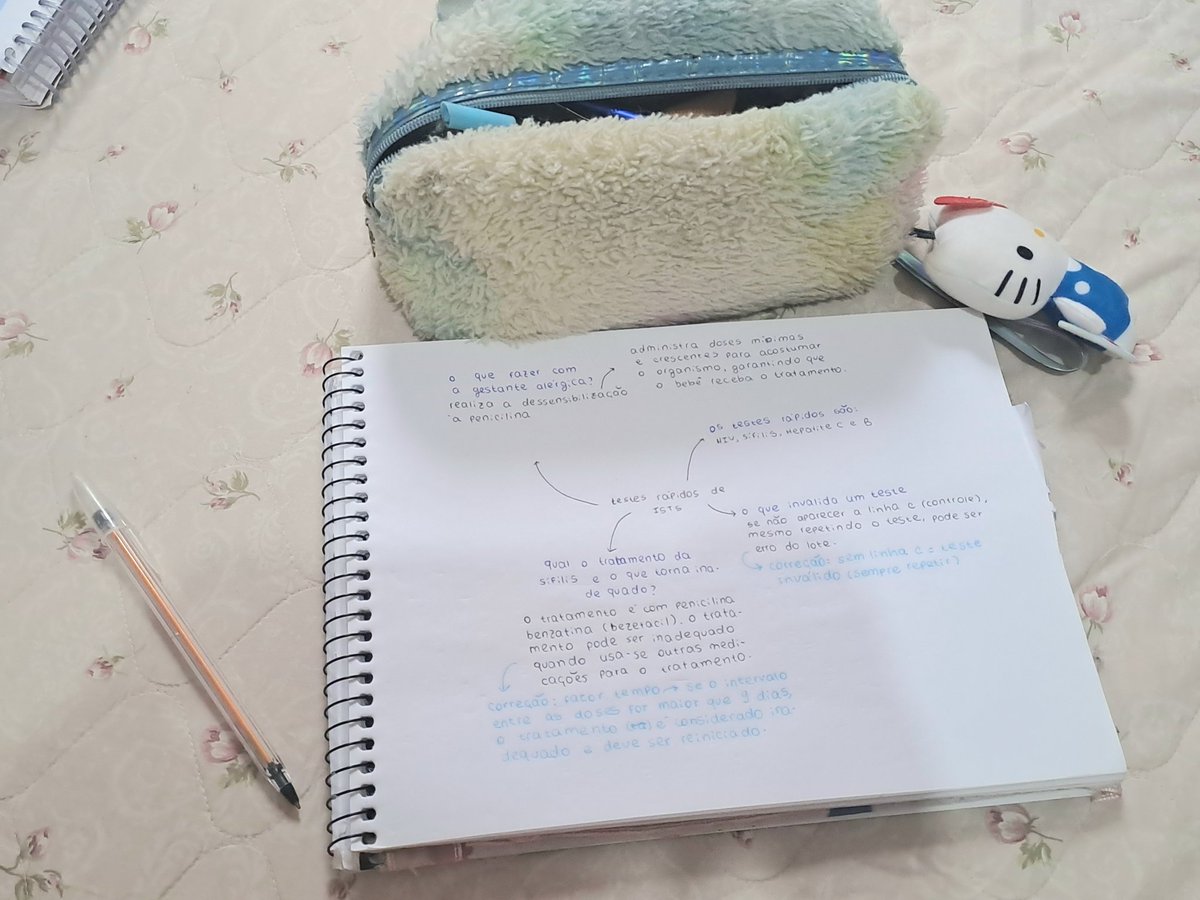 o que fazer com
a gestante alérgica?
realiza a dessensibilização
a penicilina
administra doses mínimas
e crescentes para acostumar
o organismo, garantindo que
o bebê receba o tratamento.
os testes rápidos são:
HIV, sífilis, Hepatite C e B
testes rápidos de
ISTS
o que invalida um teste
se não aparecer a linha c (controle),
mesmo repetindo o teste, pode ser
erro do lote.
correção: sem linha c = teste
inválido (sempre repetir)
qual o tratamento da
sífilis e o que torna ina-
dequado?
o tratamento é com penicilina
benzatina (bezetacil). o trata-
mento pode ser inadequado
quando usa-se outras medi-
cações para o tratamento.
correção: fator tempo → se o intervalo
entre as doses for maior que 9 dias,
o tratamento é considerado ina-
dequado e deve ser reiniciado.